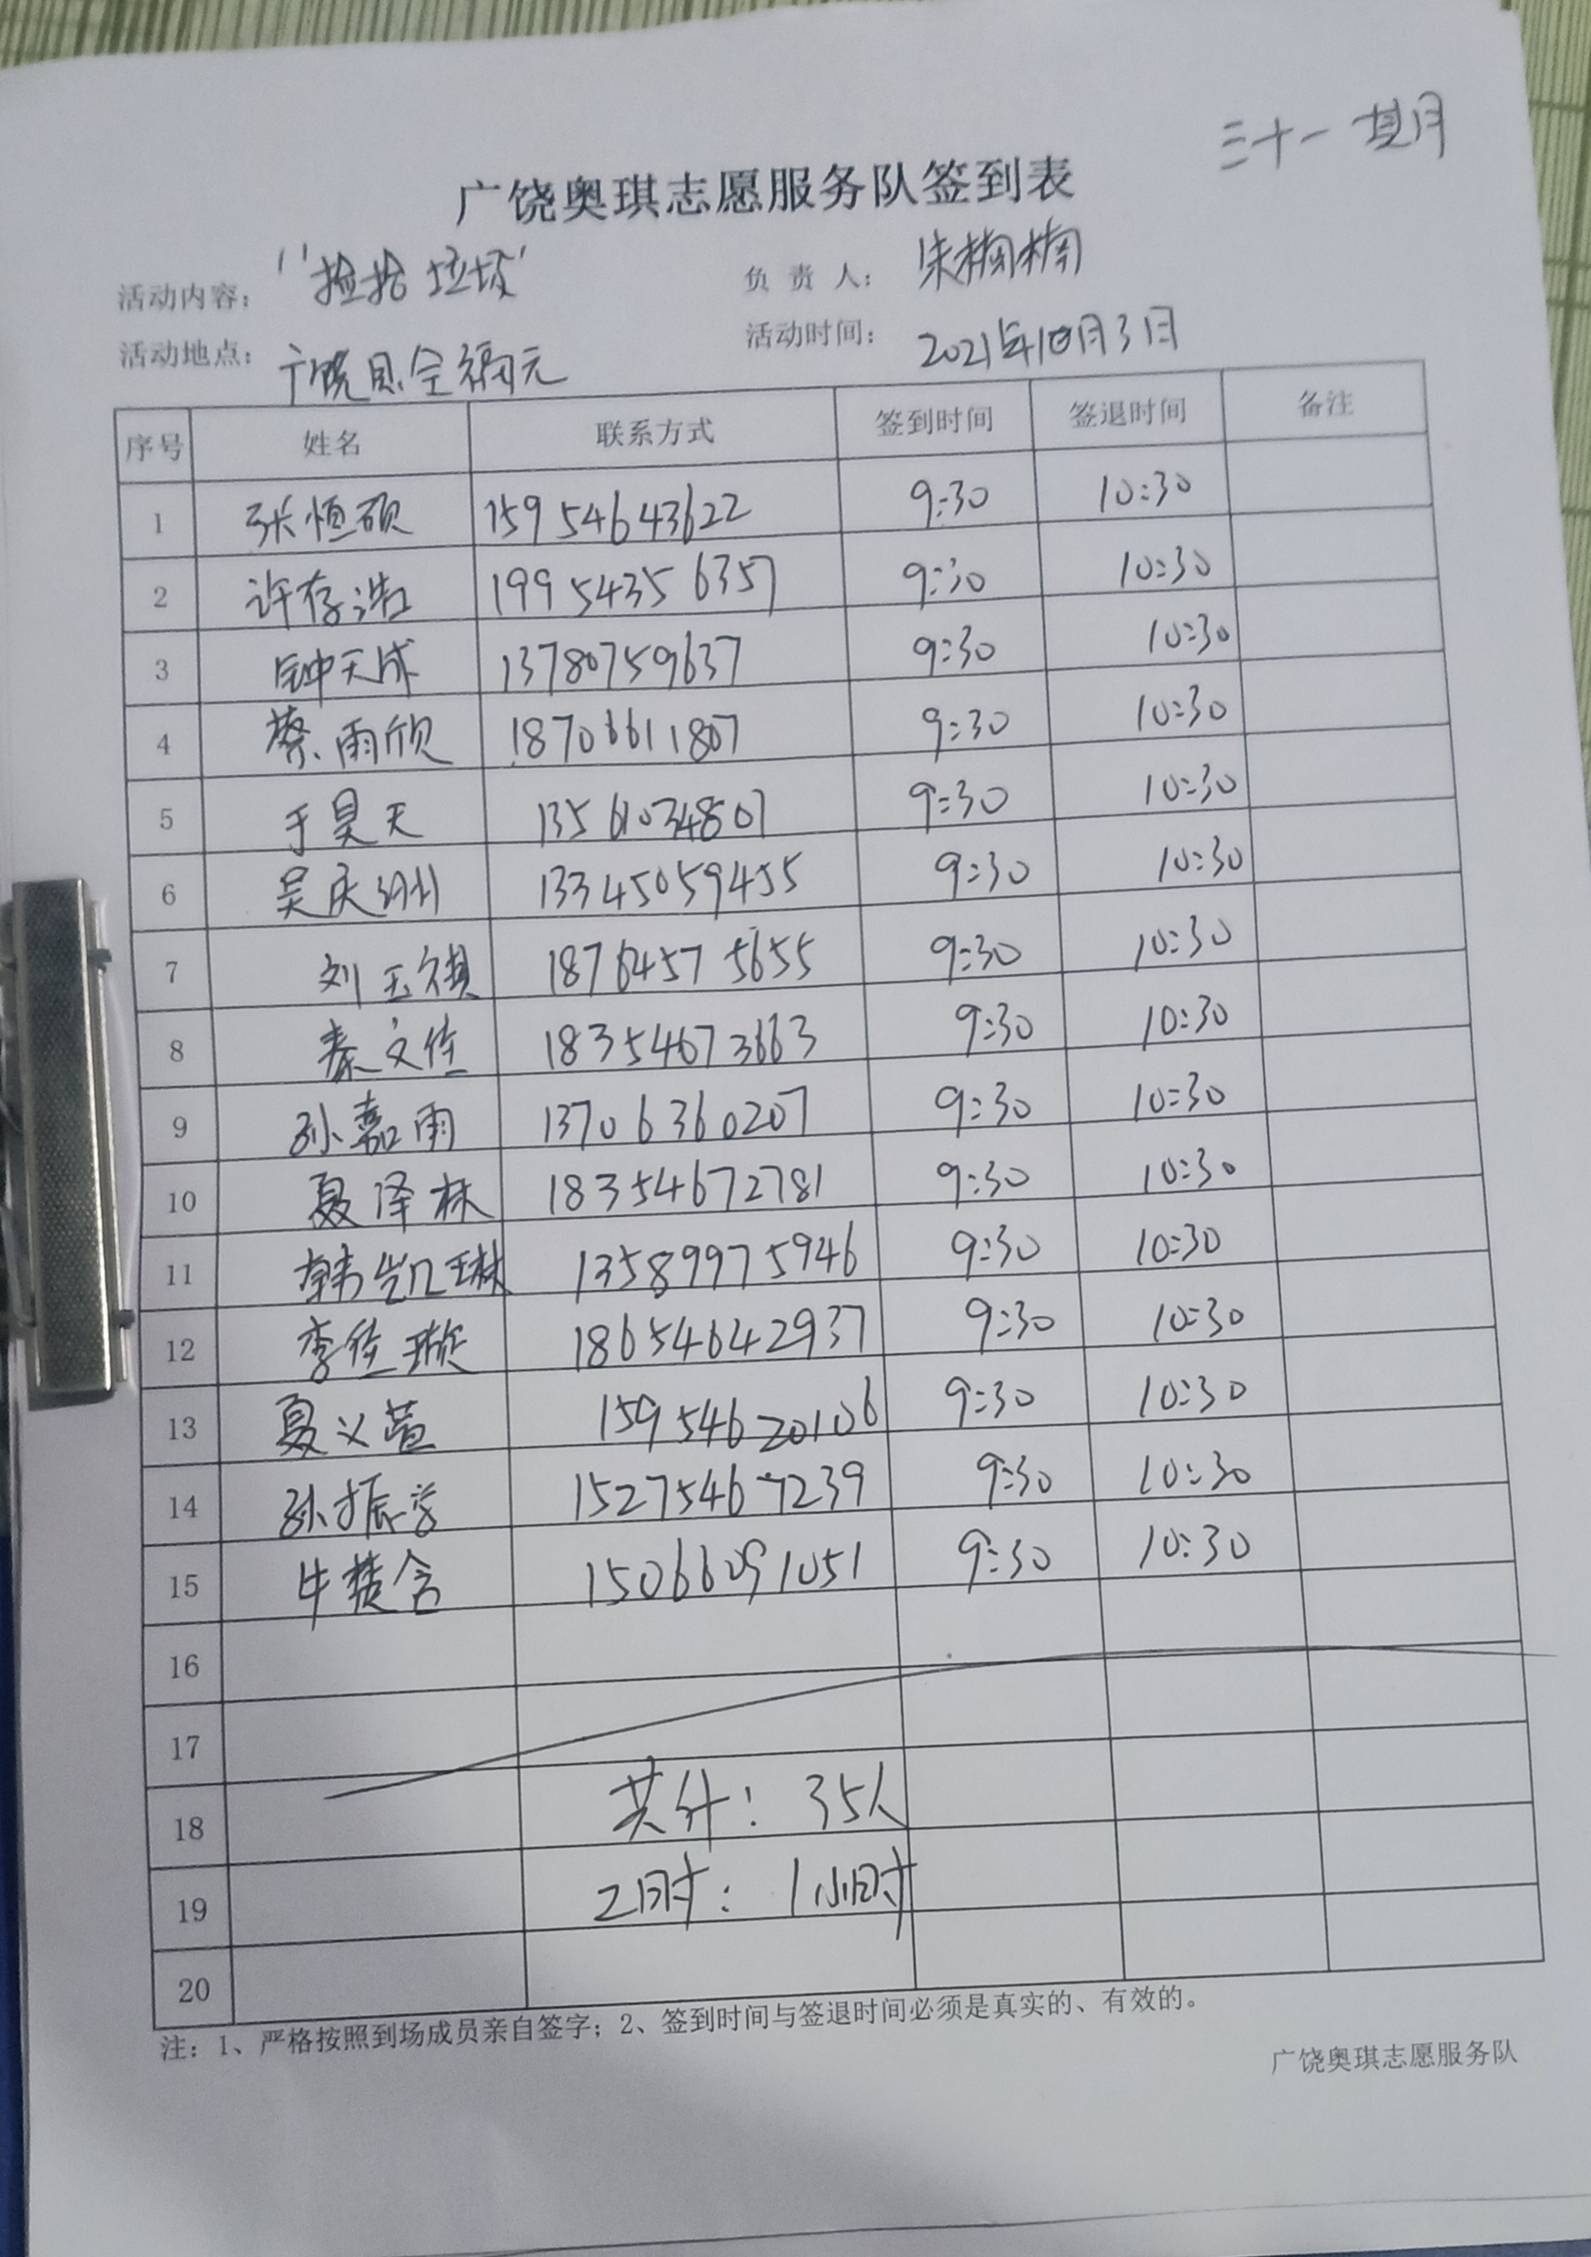 三十一 其月
广饶奥琪志愿服务队签到表
活动内容： “捡拾垃圾” 负 责 人： 朱楠楠
活动地点： 广饶县全福元 活动时间： 2021年10月3日
序号 姓名 联系方式 签到时间 签退时间 备注
1 张恒硕 15954643622 9:30 10:30
2 许存浩 19954356357 9:30 10:30
3 钟天成 13780759637 9:30 10:30
4 蔡雨欣 18706611807 9:30 10:30
5 于昊天 13561034807 9:30 10:30
6 吴庆洲 13345059455 9:30 10:30
7 刘玉祺 18764575655 9:30 10:30
8 秦文佳 18354673663 9:30 10:30
9 孙嘉雨 13706360207 9:30 10:30
10 聂泽林 18354672781 9:30 10:30
11 韩凯琳 13589975946 9:30 10:30
12 李佳璇 18654642937 9:30 10:30
13 聂义萱 15954620106 9:30 10:30
14 孙振学 15275467239 9:30 10:30
15 牛楚含 15066091051 9:30 10:30
16
17
18 共计： 35人
19 工时： 1小时
20
注：1、严格按照到场成员亲自签字；2、签到时间与签退时间必须是真实的、有效的。
广饶奥琪志愿服务队